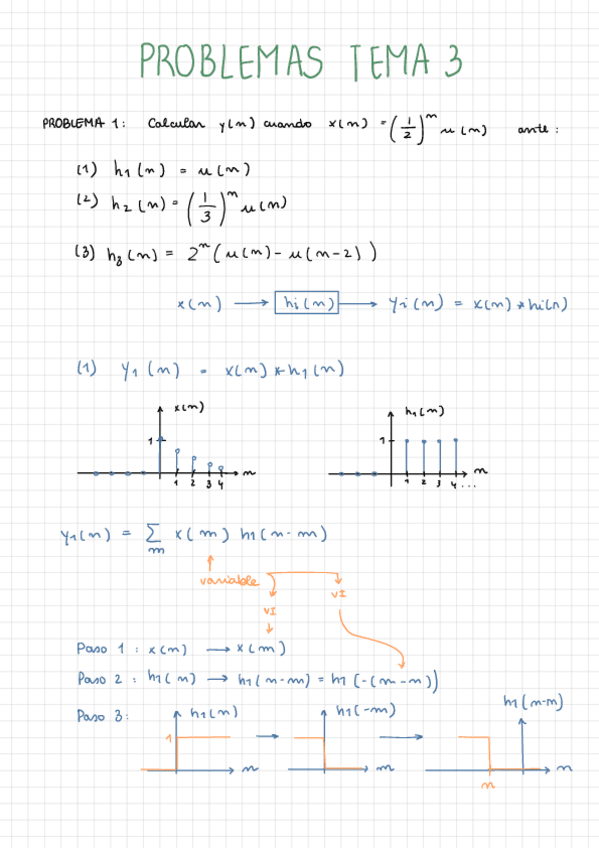 PROBLEMAS TEMA 3
PROBLEMA 1: Calcular y(n) cuando x(n) = (1/2)^n u(n) ante:
(1) h1(n) = u(n)
(2) h2(n) = (1/3)^n u(n)
(3) h3(n) = 2^n (u(n) - u(n-2))
x(n) → hi(n) → yi(n) = x(n) * hi(n)
(1) y1(n) = x(n) * h1(n)
x(n)
1
n
1 2 3 4
h1(n)
1
n
1 2 3 4 ...
y1(n) = Σ x(m) h1(n-m)
m
variable
VI
VI
Paso 1: x(n) → x(m)
Paso 2: h1(n) → h1(n-m) = h1(-(m-n))
Paso 3:
h1(m)
1
m
h1(-m)
m
h1(n-m)
m
n